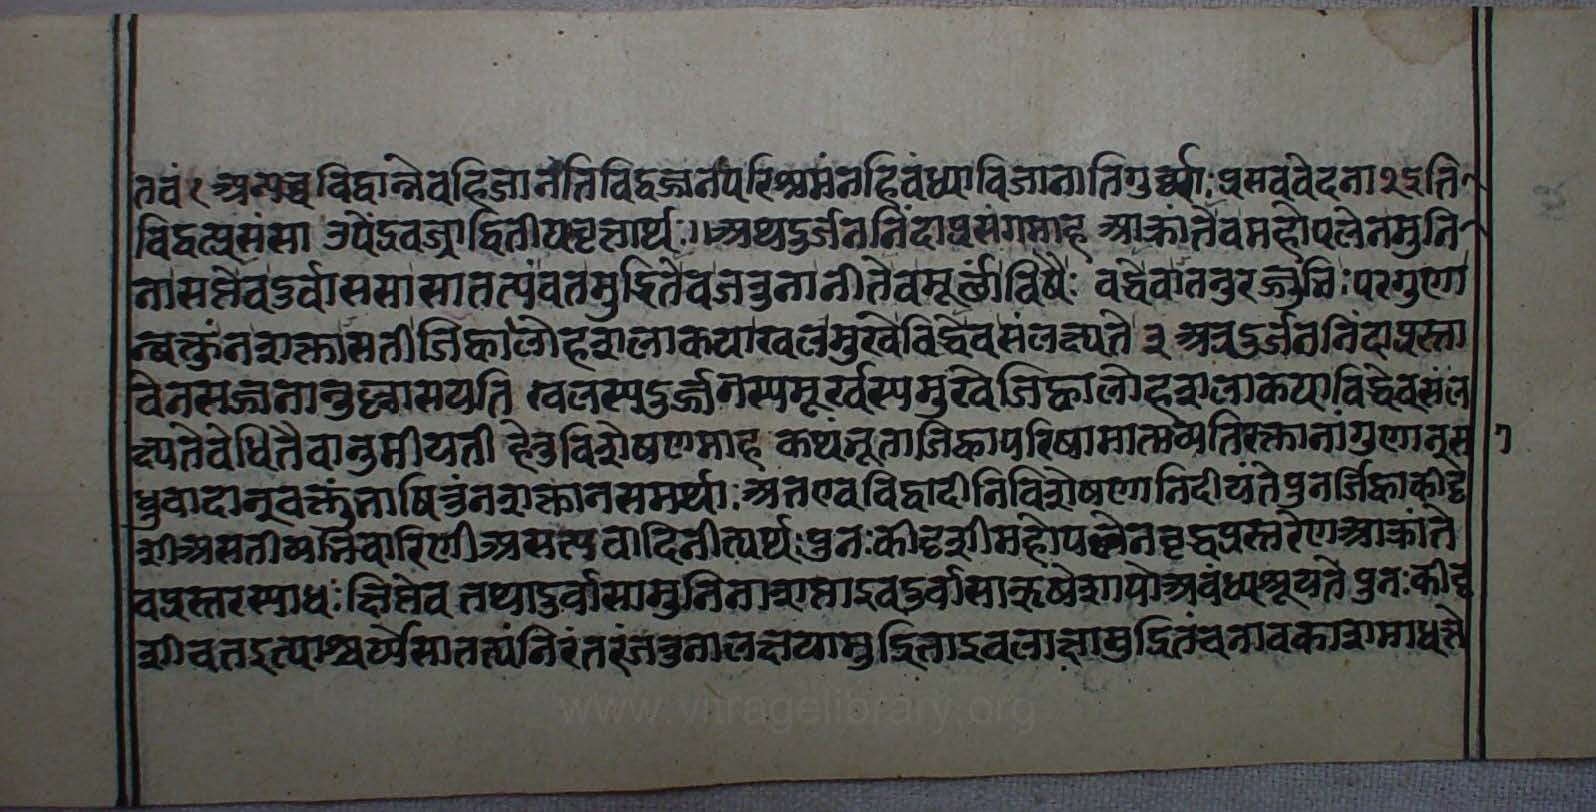 तवं १ अन्यच्च विद्वान्नेवहिजानंतिविद्वज्जनपरिश्रमंनहिवंध्याविजानातिगुर्व्वीप्रसववेदना २ इति
विद्वत्प्रसंसा उपेंद्रवज्राद्वितीयवृत्तार्थः ॥ अथदुर्जननिंदाप्रसंगमाह आक्रांतेवमहोपलेनमुनि
नासप्तेवदुर्वाससासातत्यंवतमुद्रितेवजतुनानीतेवमूर्छांविषैः वद्धेवातनुरज्जुभिः परगुणा
न्वक्तुंनशक्तासतीजिह्वालोहशलाकयाखलमुखेविद्धेवसंलक्ष्यते ३ अत्रदुर्जननिंदाप्रस्ता
वेनसज्जनानुल्लासयति खलस्यदुर्ज्जनस्यमूर्खस्यमुखेजिह्वालोहशलाकयाविद्धेवसंल
क्ष्यतेवेधितैवानुमीयती हेतुविशेषणमाह कथंभूताजिह्वापरिषामात्मव्यतिरक्तानांगुणानुस
धुवादान्वक्तुंभाषितुंनशक्तानसमर्था अतएवविद्वादीनिविशेषणानिदीयंते पुनर्जिह्वाकीदृ
शीअसतीव्यभिचारिणीअसत्यवादिनीत्यर्थः पुनःकीदृशीमहोपलेनवृद्धप्रस्तरेणआक्रांते
वप्रस्तरस्याधः क्षिप्तेव तथादुर्वासामुनिनाशप्ताइवदुर्वासाऋषेशापोअवंध्यश्रूयते पुनःकीदृ
शीवतइत्याश्चर्येसातत्यंनिरंतरंजतुनालक्षयामुद्रिताइवलाक्षामुद्रितंचनावकाशमाधत्ते
www.vitragelibrary.org